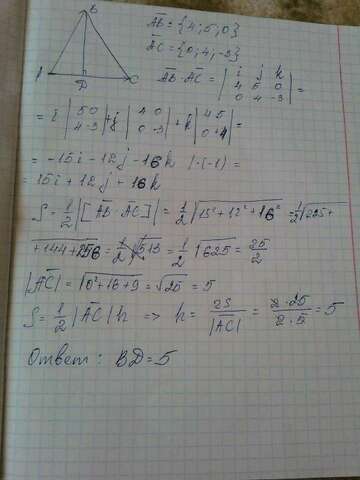 B
A D C
AB = {4; 5; 0}
AC = {0; 4; -3}
AB · AC = | i j k |
| 4 5 0 |
| 0 4 -3 | =
= i | 5 0 | + j | 4 0 | + k | 4 5 | =
| 4 -3 | | 0 -3 | | 0 4 |
= -15i - 12j - 16k | · (-1) =
= 15i + 12j - 16k
S = 1/2 |[AB · AC]| = 1/2 √15² + 12² + 16² = 1/2 √225 +
+ 144 + 256 = 1/2 = 1/2 √625 = 25/2
|AC| = √0² + 16 + 9 = √25 = 5
S = 1/2 |AC| h => h = 2S/|AC| = 2·25/2·5 = 5
Ответ: BD = 5